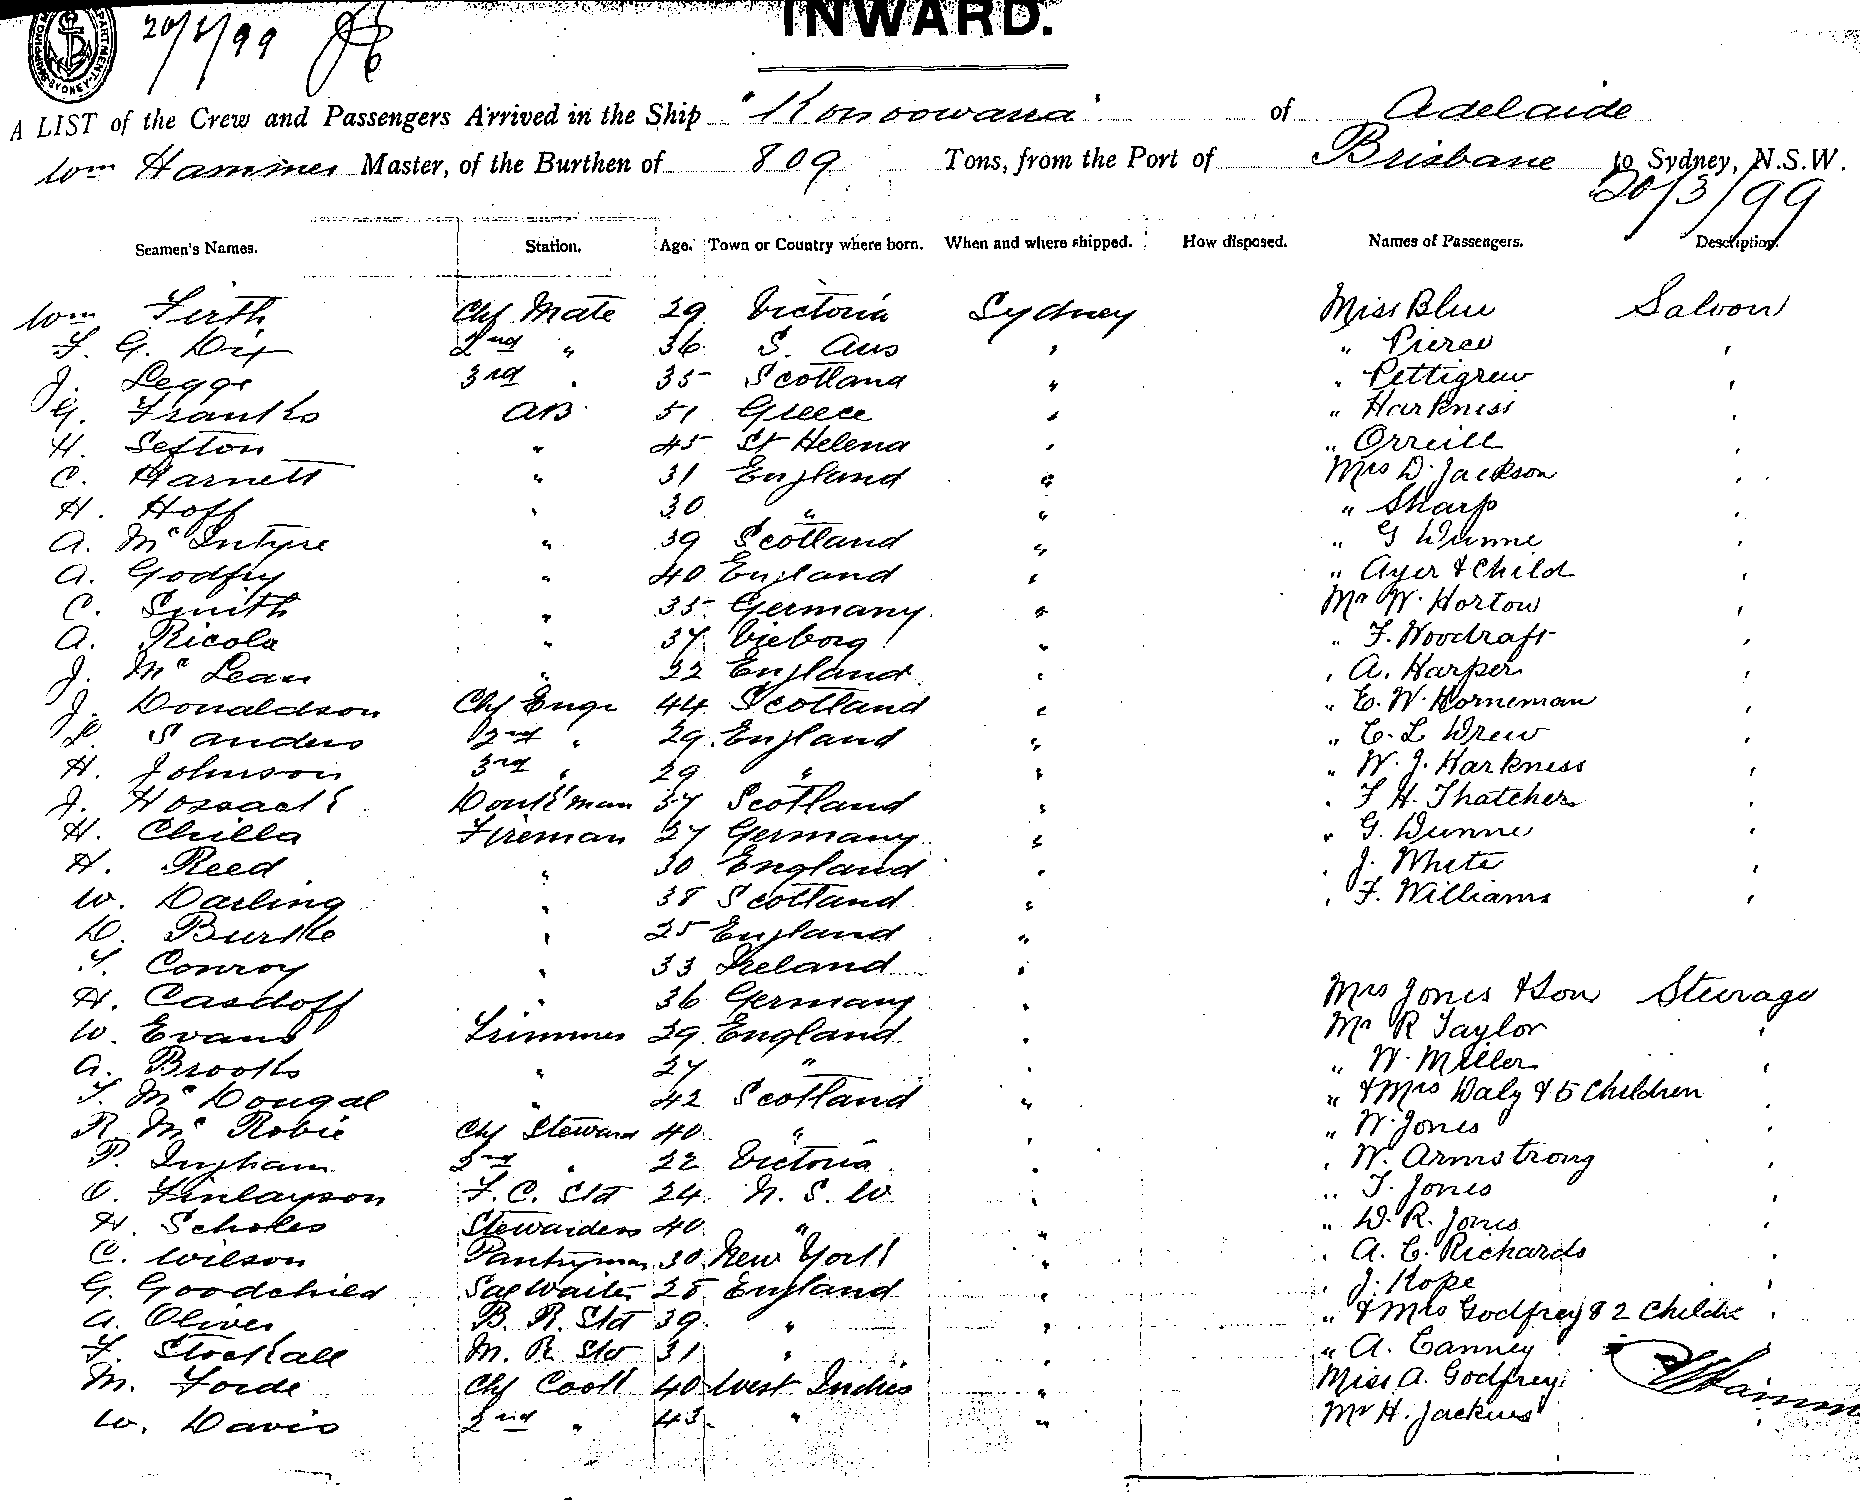 20/3/99
INWARD.
A LIST of the Crew and Passengers Arrived in the Ship "Konoowarra" of Adelaide
Wm Hammer Master, of the Burthen of 809 Tons, from the Port of Brisbane to Sydney, N.S.W.
20/3/99
Seamen's Names. Station. Age. Town or Country where born. When and where shipped. How disposed. Names of Passengers. Description.
Wm Firth Chf Mate 29 Victoria Sydney Miss Blue Saloon
F. G. Dix 2nd " 36 S. Aus " " Pierce "
J. Legge 3rd " 35 Scotland " " Pettigrew "
G. Franks AB 51 Greece " " Harkness "
H. Sefton " 45 St Helena " " Orreill "
C. Harnett " 31 England " Mrs D. Jackson "
H. Hoff " 30 " " " Sharp "
A. McIntyre " 39 Scotland " " G Dunne "
A. Godfry " 40 England " " Ayer & Child "
C. Smith " 35 Germany " Mr W. Horton "
A. Ricola " 37 Vieborg " " F. Woodraft "
J. McLean " 22 England " " A. Harper "
J. Donaldson Chf Engr 44 Scotland " " E. W. Horneman "
L. Sanders 2nd " 29 England " " C. L Drew "
H. Johnson 3rd " 29 " " " W. J. Harkness "
J. Hossack Donkman 37 Scotland " " F H. Thatcher "
H. Chilla Fireman 27 Germany " " G. Dunne "
H. Reed " 30 England " " J. White "
W. Darling " 38 Scotland " " F. Williams "
D. Burke " 25 England "
T. Conroy " 33 Ireland "
H. Casdoff " 36 Germany " Mrs Jones & Son Steerage
W. Evans Trimmer 29 England " Mr R Taylor "
A. Brooks " 27 " " W. Miller "
T. McDougal " 42 Scotland " " & Mrs Daly & 5 Children "
R McRobie Chf Steward 40 " " " W. Jones "
P. Ingham 2nd " 22 Victoria " " W. Armstrong "
O. Finlayson F.C. Std 24 N. S. W " " T. Jones "
H. Scholes Stewardess 40 " " " D. R. Jones "
C. Wilson Pantryman 30 New York " " A. C. Richards "
G. Goodchild Sal Waiter 28 England " " J. Kope "
A. Oliver B. R. Std 39 " " " & Mrs Godfrey & 2 Childn "
F. Stockall M. R Std 31 " " " A. Canney
M. Forde Chf Cook 40 West Indies " Miss A. Godfrey
W. Davis 2nd " 43 " " Mr H. Jackins